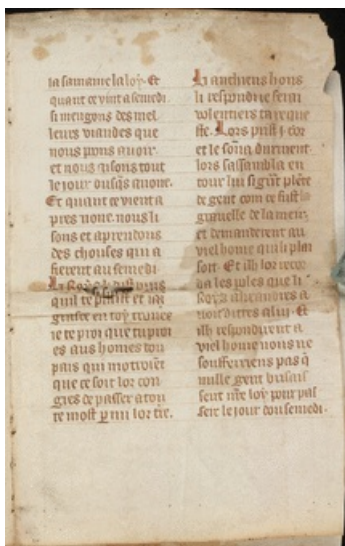 la samaine la loy. Et
quant ce vint a semedi.
si mengons des mel
leurs viandes que
nous poons auoir.
et nous gisons tout
le iour dusqs a none.
Et quant ce vient a
pres none. nous li
sons et aprendons
des chouses qui a
fierent au semedi
quil te plaist et iai
grasce en toy trouee
ie te proi que tu proi
es aus homes ton
pais qui mo
que ce soit lor con
gies de passer a tou
te most p mi lor tre.
Li anchiens hons
li respondi e ferai
volentiers ta reque
ste. Lors prist j. cor
et le sona durment.
lors sassambla en
tour lui
de gent com ce fust la
grauelle de la meir.
et demanderent au
viel home qui li plai
soit. Et ilh lor recor
da les
uoit dittes a lui. Et
ilh respondirent a
viel home nous ne
soufferriens pas q
nulle gent brisais
sent nre loy pour pas
seir le iour dou semedi.